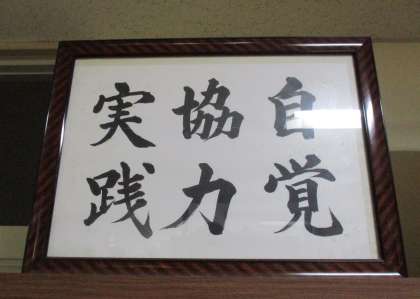 自覚
協力
実践